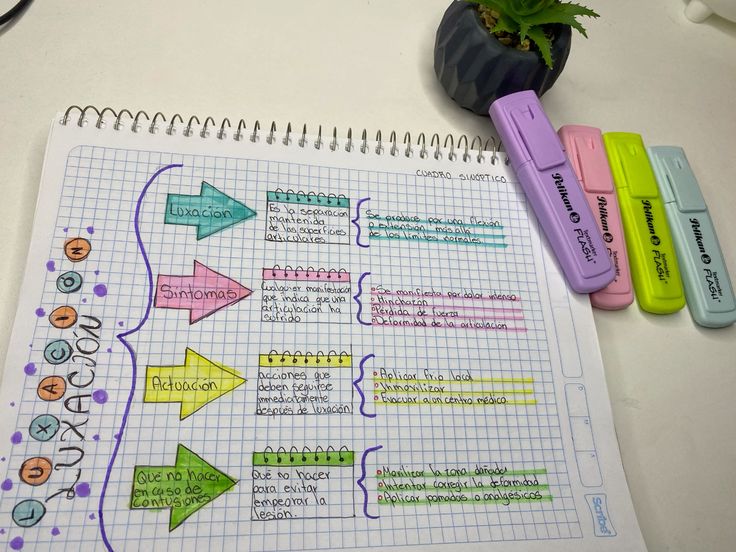 CUADRO SINÓPTICO
LUXACION
LUXACIÓN
Luxación
Es la separación
mantenida
de las superficies
articulares
Se produce por una flexion
o extension más allá
de los limites normales
Sintomas
Cualquier manifestación
que indica que una
articulación ha
sufrido
Se manifiesta por dolor intenso
Hinchazón
Pérdida de fuerza
Deformidad de la articulacion
Actuación
acciones que
deben seguirse
inmediatamente
después de luxación
Aplicar frio local
Inmovilizar
Evacuar a un centro médico.
Qué no hacer
en caso de
contusiones
Qué no hacer
para evitar
empeorar la
lesión.
Movilizar la zona dañada
Intentar corregir la deformidad
Aplicar pomadas o analgésicos
Scribe
Pelikan
Textmarker
FLASH
Pelikan
Textmarker
FLASH
Pelikan
Textmarker
FLASH
Pelikan
Textmarker
FLASH